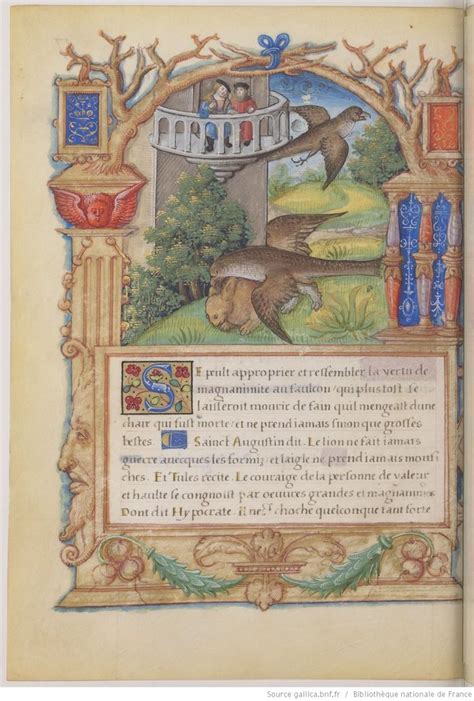 SE peult approprier et ressembler la vertu de
magnanimite au faulcon / qui plus tost se
laisseroit mourir de fain quil mengeast dune
chair qui fust morte / et ne prend iamais sinon que grosses
bestes. SAINCT AUGUSTIN dit. Le lion ne fait iamais
guerre avecques les formiz / et laigle ne prend iamais mous
ches. ET TULES recite. Le couraige de la personne de valeur
et haulte se congnoist par oeuvres grandes et magnanimes
DONT DIT HYPOCRATE. il nest choche quelconque tant forte
Source gallica.bnf.fr / Bibliothèque nationale de France